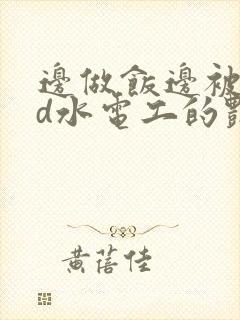 邊做飯邊被
d水電工的
黃蓓佳